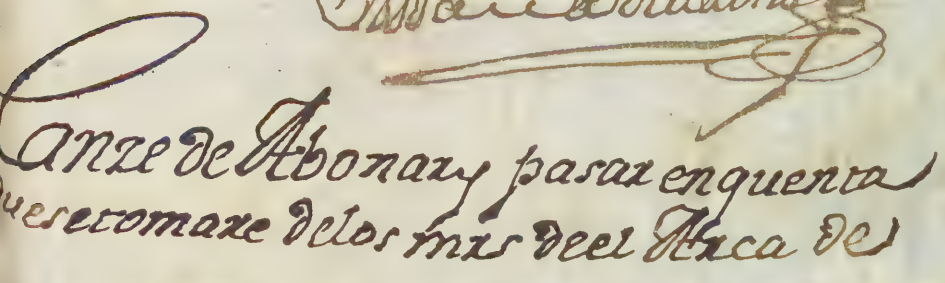 Hanze de Abonar y pasar en quenta
que se tomare de los mrs de el Arca de